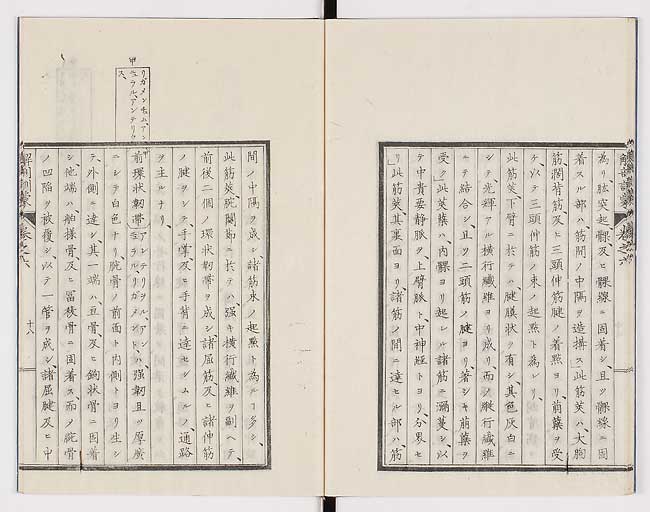 為リ肱突起、髁及ヒ髁線ニ固着シ、且ツ髁線ニ固
着スル部ハ筋間ノ中隔ヲ造搆ス」此筋莢ハ、大胸
筋、濶背筋、及ヒ三頭伸筋腱ノ着點ヨリ、萠蘗ヲ受
ケ以テ三頭伸筋ノ束ノ起點ト為レリ、
此筋莢、下臂ニ於テハ、腱膜状ヲ有シ、其色灰白ニ
シテ、光輝アル横行纖維ヨリ成リ、而シ腱行纖維
ニテ結合シ、且ツ二頭筋ノ腱ヨリ、著シキ萠蘗ヲ
受ク」此筋莢ハ、内髁ヨリ起レル諸筋ニ瀰蔓シ、以
テ中貴要静脈ヲ、上臂脈ト、中神経トヨリ、分界セ
リ」此筋莢其裏面ヨリ諸筋ノ間ニ達セル部ハ、筋
解剖訓蒙
巻之六
間ノ中隔ヲ成シ諸筋束ノ起點ト為ルヿ多シ、
此筋莢腕関節ニ於テハ、强キ横行纖維ヲ副ヘテ、
前後二個ノ環状靭帶ヲ成シ、諸屈筋及ヒ諸伸筋
ノ腱ヲシテ、手掌及ヒ手背ニ達セシムルノ通路
ヲ主ルナリ、
前環状靭帶「アンテリヲル、アンニュラル、リガメント」ハ、强靭且ツ厚廣
ニシテ白色ナリ、腕骨ノ前面ト内側トヨリ生シ
テ、外側ニ達シ、其一端ハ、豆骨及ヒ鉤状骨ニ固着
シ、他端ハ、舶様骨及ヒ冨枚骨ニ固着ス、而メ腕骨
ノ凹陷ヲ被覆シ、以テ一管ヲ成シ、諸屈腱及ヒ中
甲
リガメンチュム、アンニュラル、アンテリウス、
解剖訓蒙
巻之六
十八